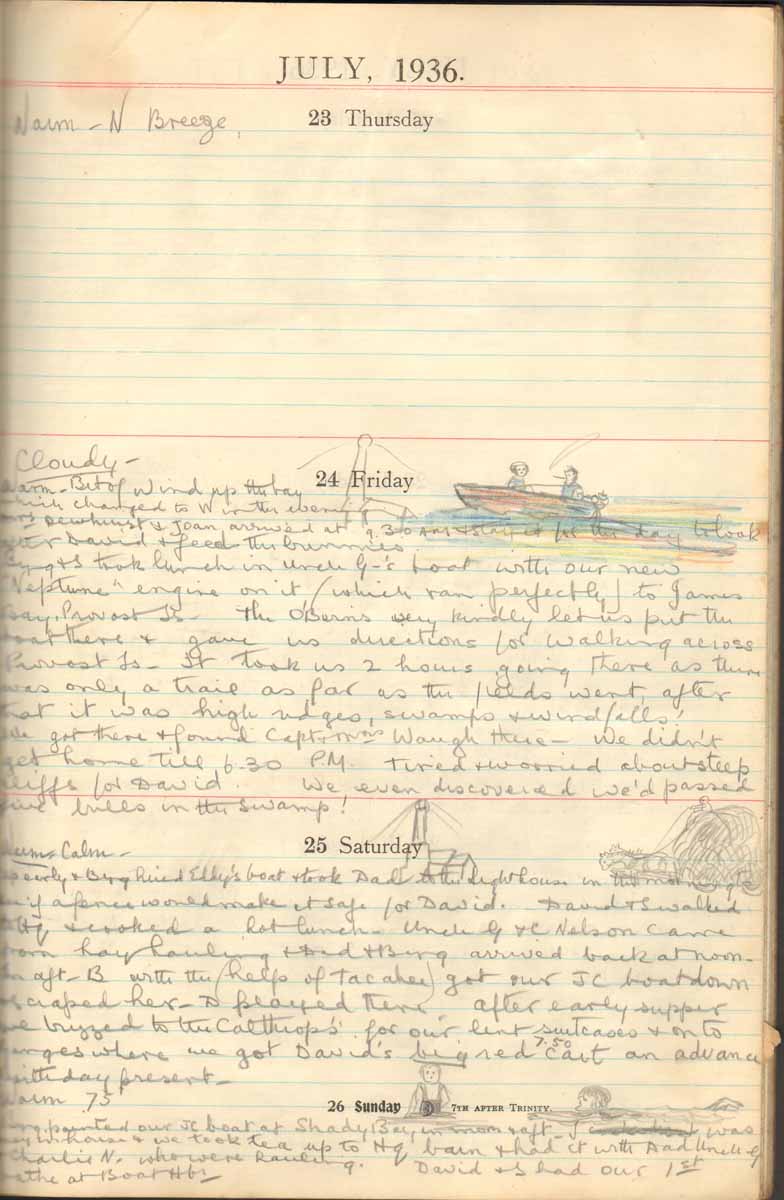 JULY, 1936.
Warm - N Breeze,
23 Thursday
Cloudy -
24 Friday
Warm - Bit of Wind up the bay
which changed to W in the evening
Mrs Dewhurst & Joan arrived at 9.30 AM & stayed for the day to look
after David & feed the bunnies.
& I took lunch in Uncle G-'s boat with our new
"Neptune" engine on it (which ran perfectly) to James
Bay, Provost Is- The very kindly let us put the
boat there & gave us directions for walking across
Provost Is- It took us 2 hours going there as there
was only a trail as far as the fields went, after
that it was high ridges, swamps & windfalls!
We got there & found Capt & Mrs Waugh there - We didn't
get home till 6.30 P.M. tired & worried about steep
cliffs for David. We even discovered we'd passed
five bulls in the swamp!
25 Saturday
Calm -
& Berg hired Eddy's boat & took Dad to the Lighthouse in the morning
if a fence would make it safe for David. David & I walked
HQ & cooked a hot lunch - Uncle G & C Nelson came
from hay hauling & Dad & Berg arrived back at noon -
In aft - B with the (help of ) got our JC boat down
scraped her - D played there after early supper
we buzzed to the Calthrop's for our lent suitcases & on to
Ganges where we got David's big red 7.50 cart an advance
birthday present -
Warm 75
26 Sunday
7TH AFTER TRINITY.
painted our JC boat at Shady Bay, in morn & aft - J was
& we took tea up to HQ barn & had it with Dad Uncle G
Charlie N. who were hauling. David & I had our 1st
bathe at Boat Hbr